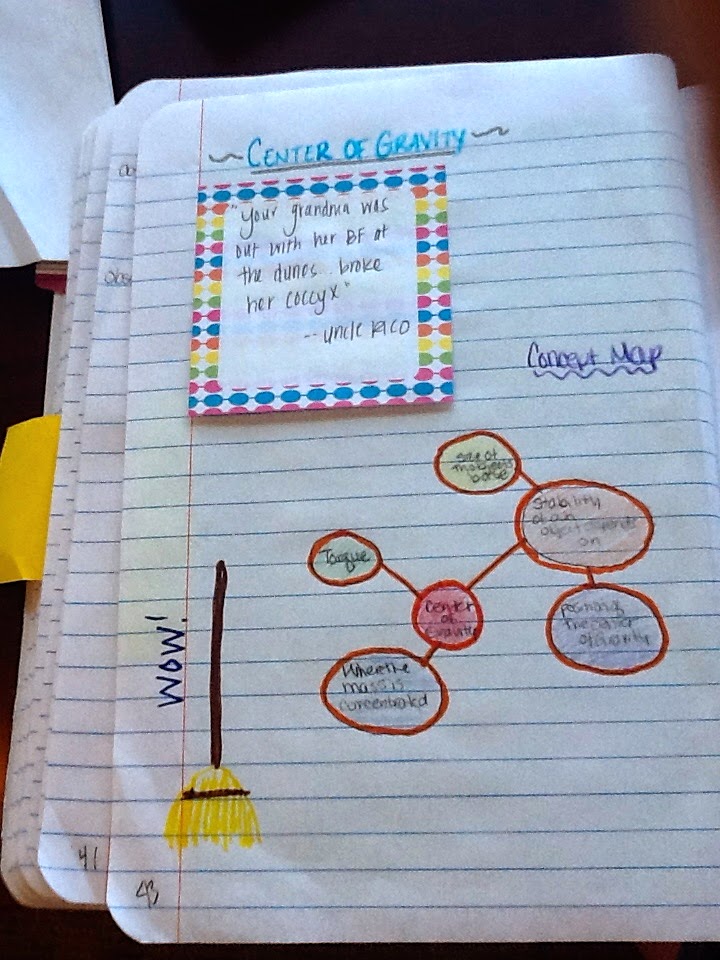 ~CENTER OF GRAVITY~
"your grandma was
out with her BF at
the dunes.. broke
her coccyx"
-- uncle RICO
Concept Map
Size of
the object's
base
Stability
of an
object depends
on
Torque
Center
of
Gravity
position of
the center
of gravity
Where the
mass is
concentrated
WOW!
41
43